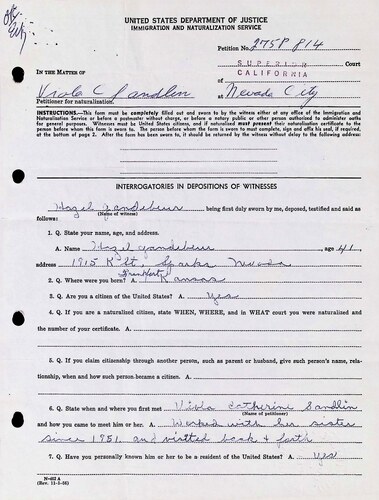 UNITED STATES DEPARTMENT OF JUSTICE
IMMIGRATION AND NATURALIZATION SERVICE
Petition No. 275P 814
IN THE MATTER OF
SUPERIOR Court
of CALIFORNIA
Viola C Sandlin at Nevada City
Petitioner for naturalization.
INSTRUCTIONS.—This form must be completely filled out and sworn to by the witness either at any office of the Immigration and
Naturalization Service or before a postmaster without charge, or before a notary public or other person authorized to administer oaths
for general purposes. Witnesses must be United States citizens, and if naturalized must present their naturalization certificate to the
person before whom this form is sworn to. The person before whom the form is sworn to must complete, sign and affix his seal, if required,
at the bottom of page 2. After the form has been sworn to, it should be returned by the witness without delay to the following address:
INTERROGATORIES IN DEPOSITIONS OF WITNESSES
Hazel being first duly sworn by me, deposed, testified and said as
(Name of witness)
follows:
1. Q. State your name, age, and address.
A. Name Hazel , age 41,
address 1915 K St, Sparks Nevada
Frankfort
2. Q. Where were you born? A. Kansas
3. Q. Are you a citizen of the United States? A. Yes
4. Q. If you are a naturalized citizen, state WHEN, WHERE, and in WHAT court you were naturalized and
the number of your certificate. A.
5. Q. If you claim citizenship through another person, such as parent or husband, give such person's name, rela-
tionship, when and how such person became a citizen. A.
6. Q. State when and where you first met Viola Catherine Sandlin
(Name of petitioner)
and how you came to meet him or her. A. Worked with her sister
since 1951. and visited back & forth
7. Q. Have you personally known him or her to be a resident of the United States? A. Yes
N-462 A